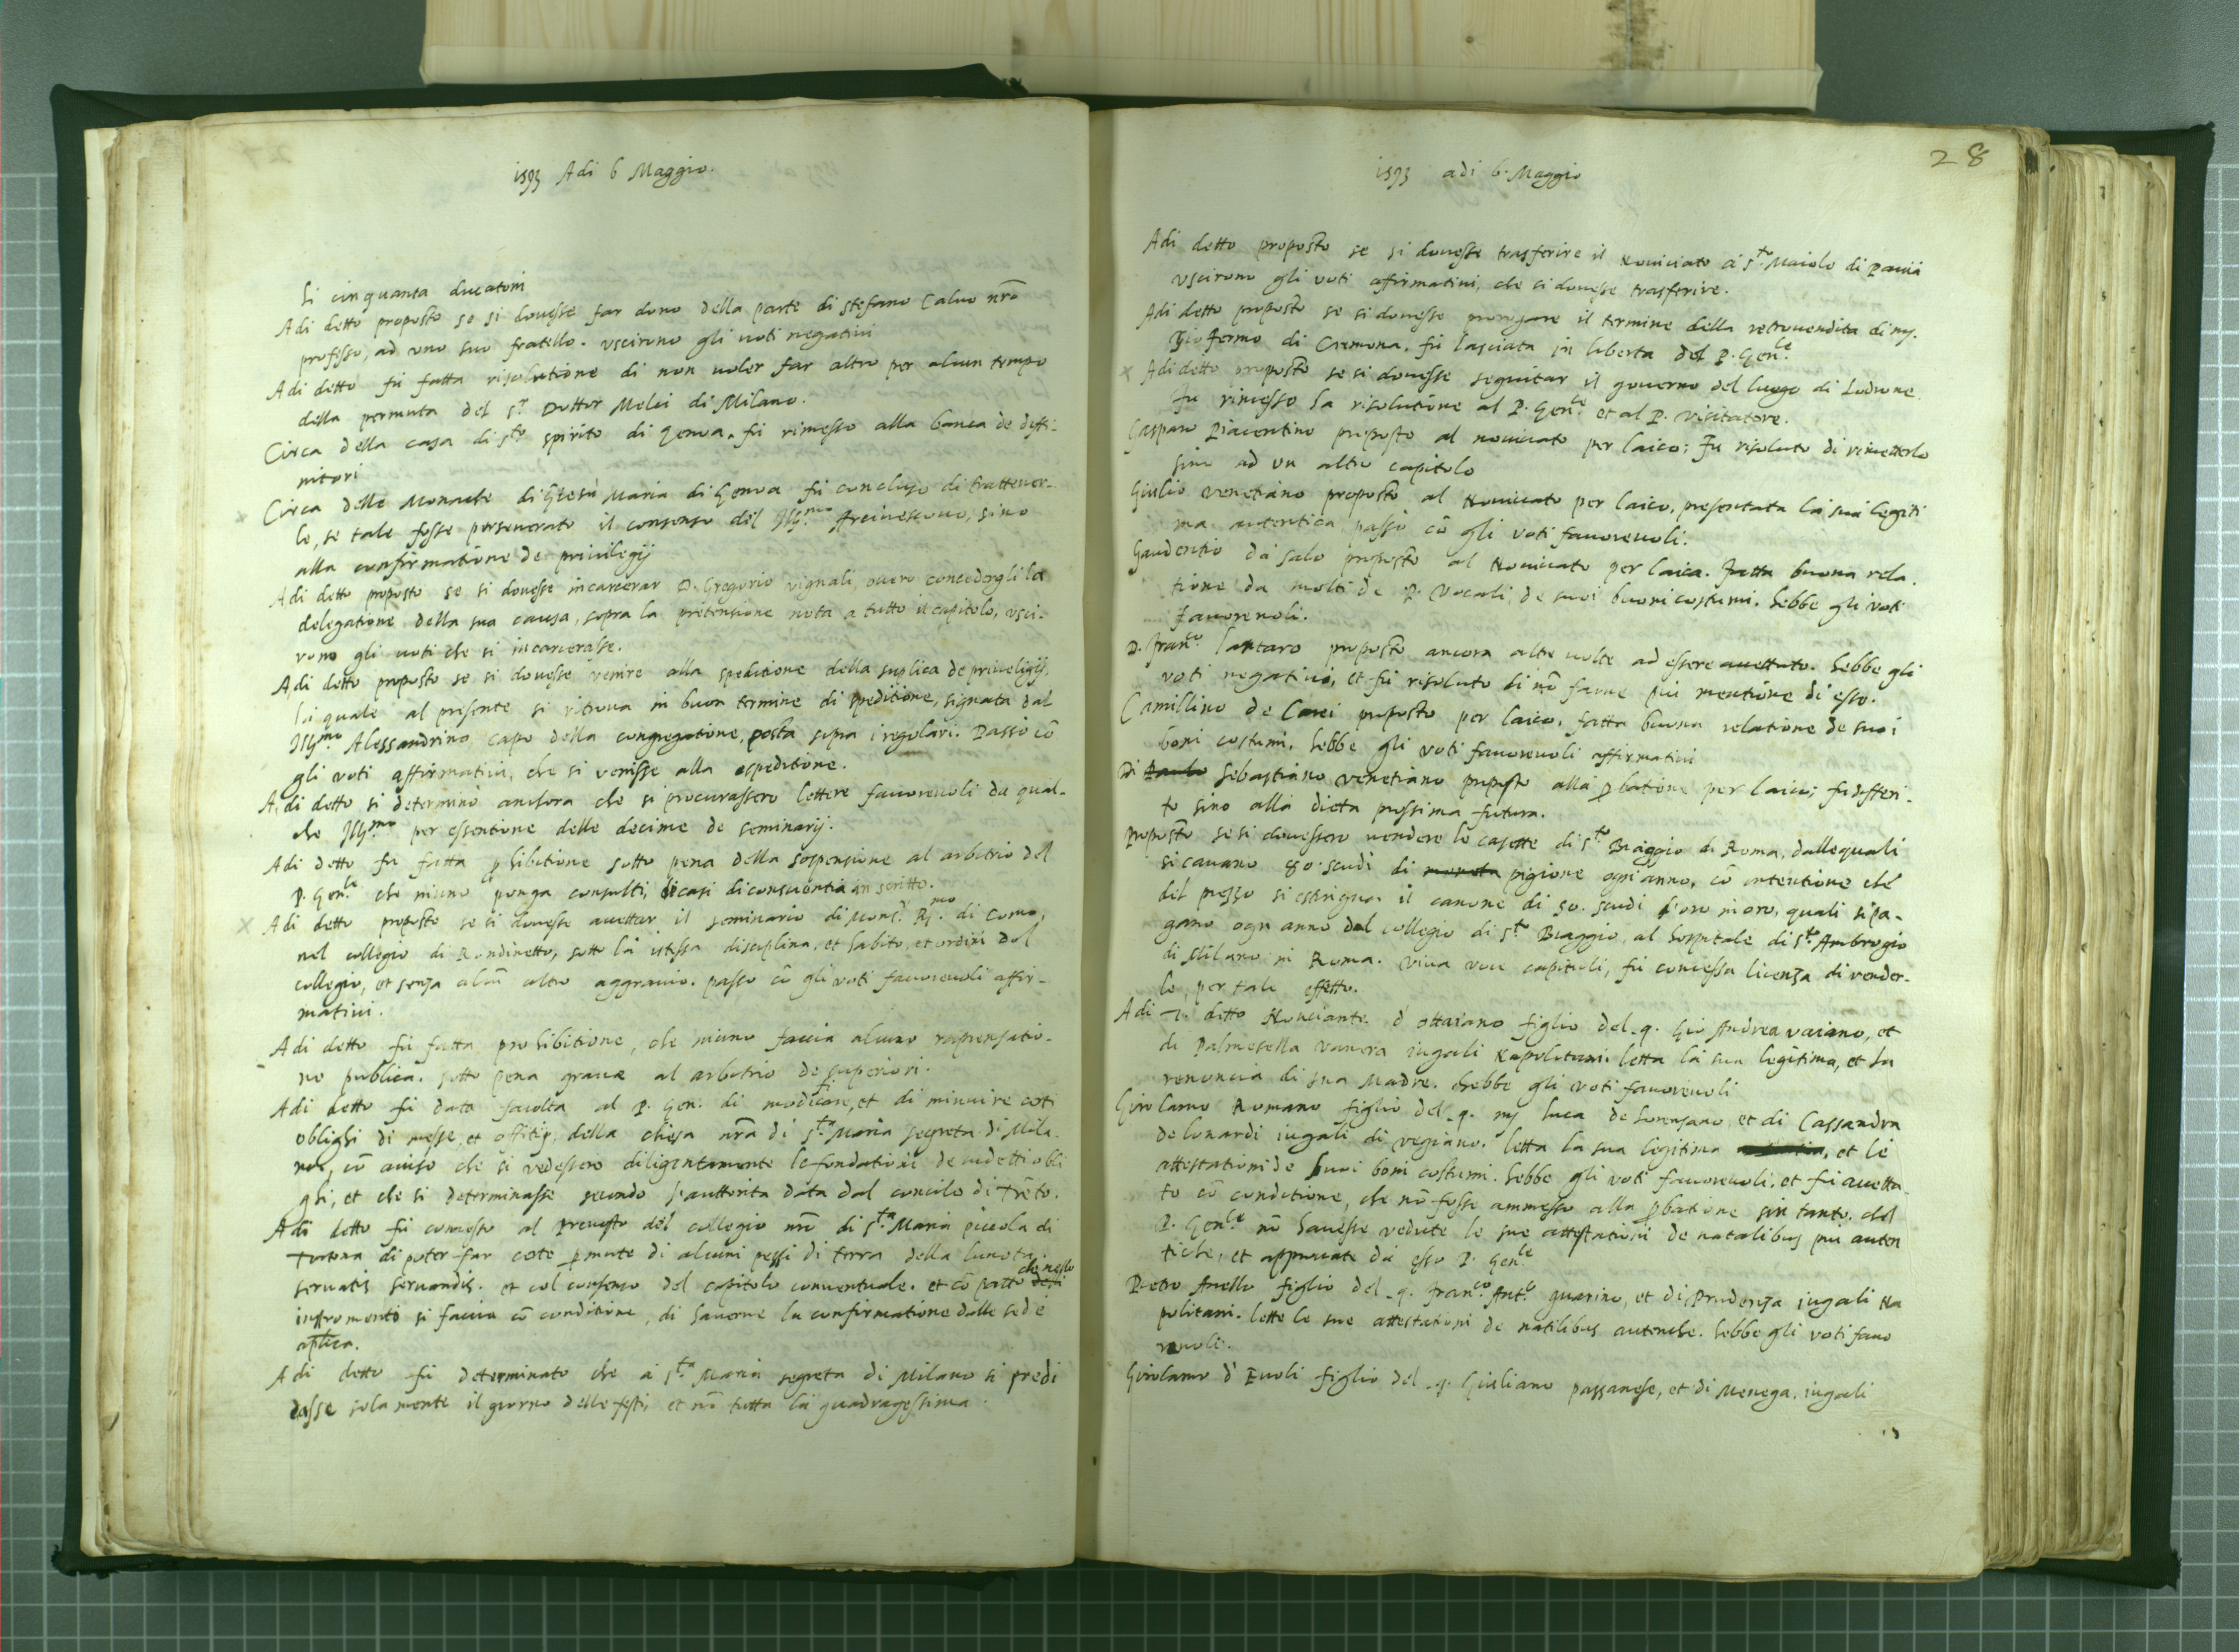 1593 Adi 6 Maggio.
li cinquanta ducatoni
Adi detto proposto se si douesse far dono della parte di stefano Caluo nrō
professo, ad uno suo fratello. uscirono gli uoti negatiui
Adi detto fù fatta risolutione di non uoler far altro per alcun tempo
della permuta del Sr Dottor Melzi di Milano.
Circa della casa di Sto spirito di Genoa. fù rimesso alla banca de diffi-
nitori
Circa delle Monache di Giesù Maria di Genoa fù concluso di trattener-
le, se tale fosse perseuerato il consenso del Illmo Arciuescouo, sino
alla confirmatione de priuilegij
Adi detto proposto se si douesse incarcerar D. Gregorio vignali, ouero concedergli la
delegatione della sua causa, sopra la pretensione nota a tutto il capitolo, usci-
rono gli uoti che si incarcerasse.
Adi detto proposto se si douesse venire alla speditione della suplica de priueligij,
la quale al presente si ritroua in buon termine di speditione, signata dal
Illmo Alessandrino capo della congregatione, posta sopra i regolari. Passò cō
gli voti affirmatiui, che si venisse alla espeditione.
Adi detto si determinò anchora che si procurassero lettere fauoreuoli da qual-
che Illmo per essentione delle decime de seminarij.
Adi detto fu fatta phibitione sotto pena della sospensione al arbitrio del
P. Genle che niuno ponga consulti, di casi di conscientia in scritto.
Adi detto proposto se si douesse accettar il seminario di Monsr Rmo di Como,
nel collegio di Rondinetto, sotto la istessa disciplina, et habito, et ordini del
collegio, et senza alcū altro aggrauio. passo cō gli voti fauoreuoli affir-
matiui.
Adi detto fù fatta prohibitione, che niuno faccia alcuna rapresentatio-
ne publica. sotto pena graue al arbitrio de superiori.
Adi detto fù data facolta al P. Gen. di modificare, et di minuire certi
oblighi di messe, et offitij, della chiesa nra di Sta Maria segreta di Mila-
no, cō auiso che si vedessero diligentemente le fondationi de sudetti obli
ghi, et che si determinasse secondo l'auttorita data dal concilio di Trēto.
Adi detto fù concesso al Preuosto del collegio nrō di Sta Maria piccola di
Tortona di poter far certe pmute di alcuni pezzi di terra della luneta.
seruatis seruandis. et col consenso del capitolo conuentuale. et cō patto che nello
instromento si faccia cō conditione, di hauerne la confirmatione dalla sede
aplica.
Adi detto fù determinato che à Sta Maria segreta di Milano si predi
casse solamente il giorno delle feste, et nō tutta la quadragessima.
28
1593 adi 6. Maggio
Adi detto proposto se si douesse trasferire il Nouiciato à Sto Maiolo di Pauia
uscirono gli voti affirmatiui, che si douesse trasferire.
Adi detto proposto se si douesse prorogare il termine della retrouendita di ms.
Gio fermo di Cremona. fù lasciata in liberta del P. Genle
Adi detto proposto se si douesse seguitar il gouerno del luogo di Lodrone.
Fu rimesso la risolutione al P. Genle et al P. Visitatore.
Gasparo Piacentino proposto al nouiciato per laico; Fu risoluto di rimetterlo
sino ad un altro capitolo
Giulio venetiano proposto al Nouiciato per laico, presentata la sua legiti
ma autentica, passò cō gli voti fauoreuoli.
Gaudentio da salo proposto al Nouiciato per laico. Fatta buona rela.
tione da molti de P. Vocali, de suoi buoni costumi. hebbe gli voti
fauoreuoli.
D. Franco lantaro proposto ancora altre uolte ad essere accettato. hebbe gli
voti negatiui, et fù risoluto di nō farne piu mentione di esso.
Camillino de Carei proposto per laico, fatta buona relatione de suoi
boni costumi, hebbe gli voti fauoreuoli affirmatiui
Di Paulo Sebastiano venetiano proposto alla pbatione per laico; fu differi-
to sino alla dieta prossima futura.
Proposto se si douessero vendere le casette di Sto Biaggio di Roma, dalle quali
si cauano 80. scudi di moneta pigione ogni anno, cō intentione che
del prezzo si estingua il canone di 50. scudi d'oro in oro, quali si pa-
gano ogni anno dal collegio di Sto Biaggio, al hospitale di Sto Ambrogio
di Milano in Roma. viua voce capituli, fù concessa licenza di vender-
le, per tale effetto.
Adi 7. detto Nonciante d'ottaiano figlio del q. Gio Andrea vaiano, et
di Palmesella iugali Napolitani. letta la sua legitima, et la
renoncia di sua Madre. hebbe gli voti fauoreuoli
Girolamo Romano figlio del q. ms luca de Lorensano, et di Cassandra
de lonardi iugali di vegiano. letta la sua legitima, et le
attestationi de suoi boni costumi. hebbe gli voti fauoreuoli. et fù accetta
to cō conditione, che nō fosse ammesso alla pbatione sin tanto. chel
P. Genle nō hauesse vedute le sue attestationi de natalibus piu auten
tiche, et approuate da esso P. Genle
Pietro Anello figlio del q. Franco Anto guarino, et di Prudenza iugali Na
politani. lette le sue attestationi de natilibus autentiche. hebbe gli voti fauo
reuoli.
Girolamo d'Euoli figlio del q. Giuliano passanese, et di Menega, iugali